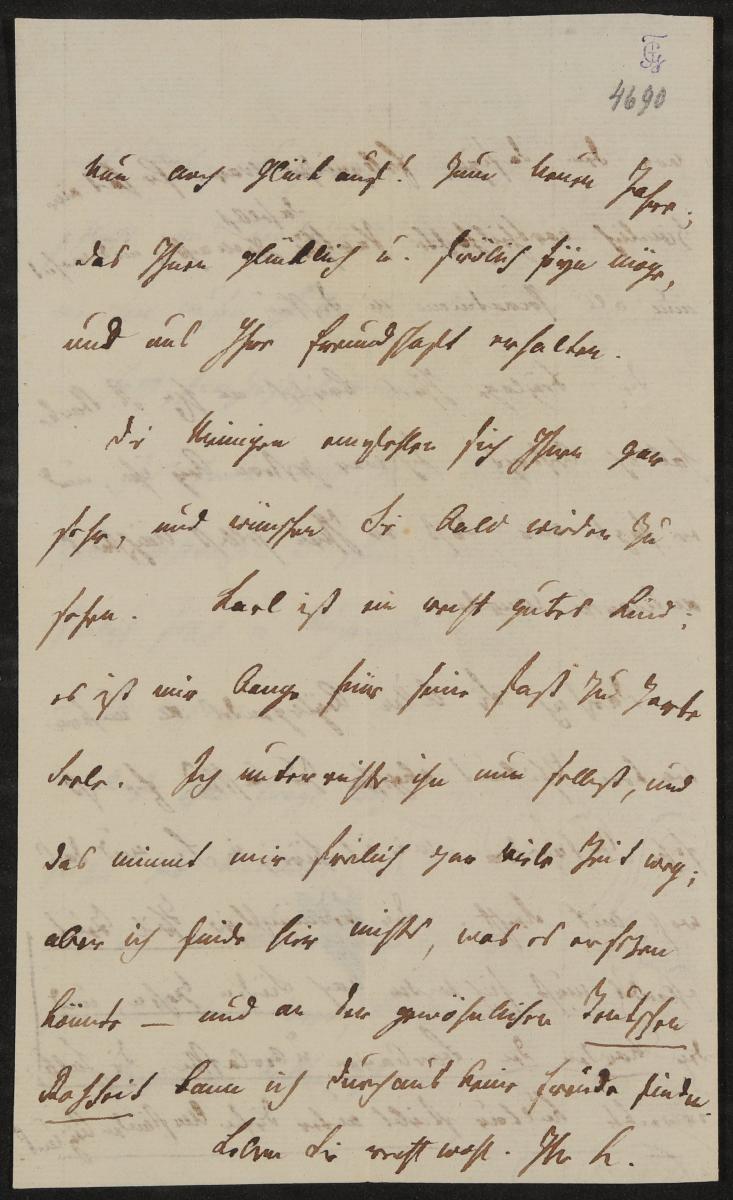 4690
Nun auch Glück auf! zum neuen Jahre,
das Ihnen glücklich u. frölich seyn möge,
und uns Ihre Freundschaft erhalten.
Die Meinigen empfehlen sich Ihnen gar
sehr, und wünschen Sie bald wieder zu
sehen. Karl ist ein recht gutes Kind;
es ist mir bange für seine fast zu zarte
Seele. Ich unterrichte ihn nun selbst, und
das nimmt mir freilich gar viele Zeit weg;
aber ich finde hier nichts, was es ersezen
könnte — und an der gewöhnlichen Teutschen
Rohheit kann ich durchaus keine Freude finden.
Leben Sie recht wohl. Ihr